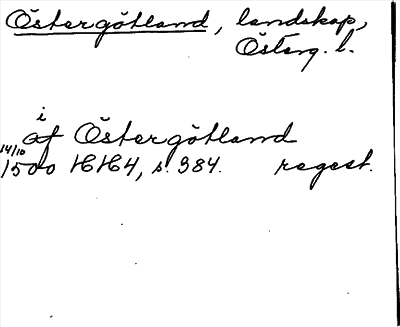 Östergötland, landskap,
Österg. l.
i
af Östergötland
14/10
1500 HH4, s. 384. regest.